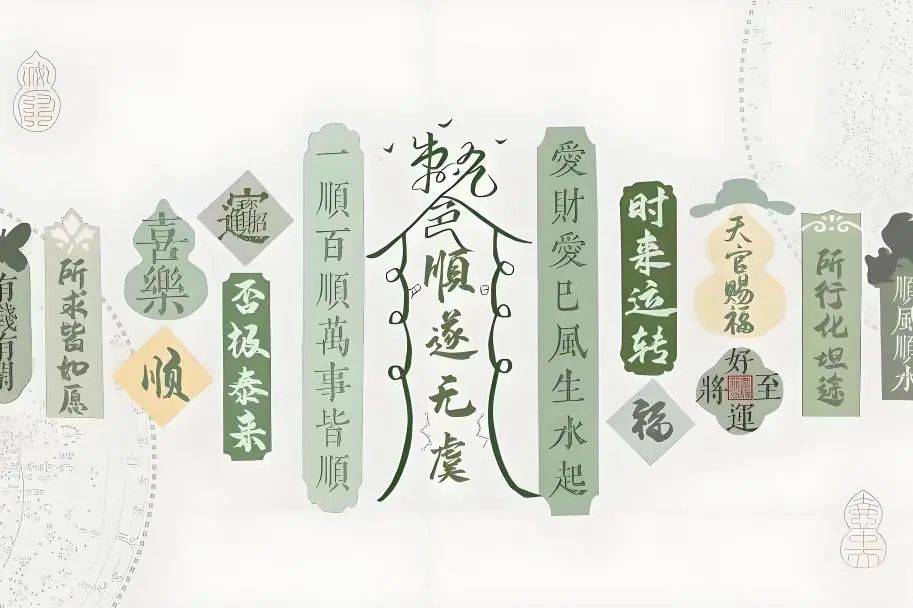 有錢有
所求皆如愿
喜樂
顺
招財進寶
否极泰来
一順百順萬事皆順
順遂无虞
愛財愛巳風生水起
时来运转
福
天官賜福
好運將至
所行化坦途
順風順水